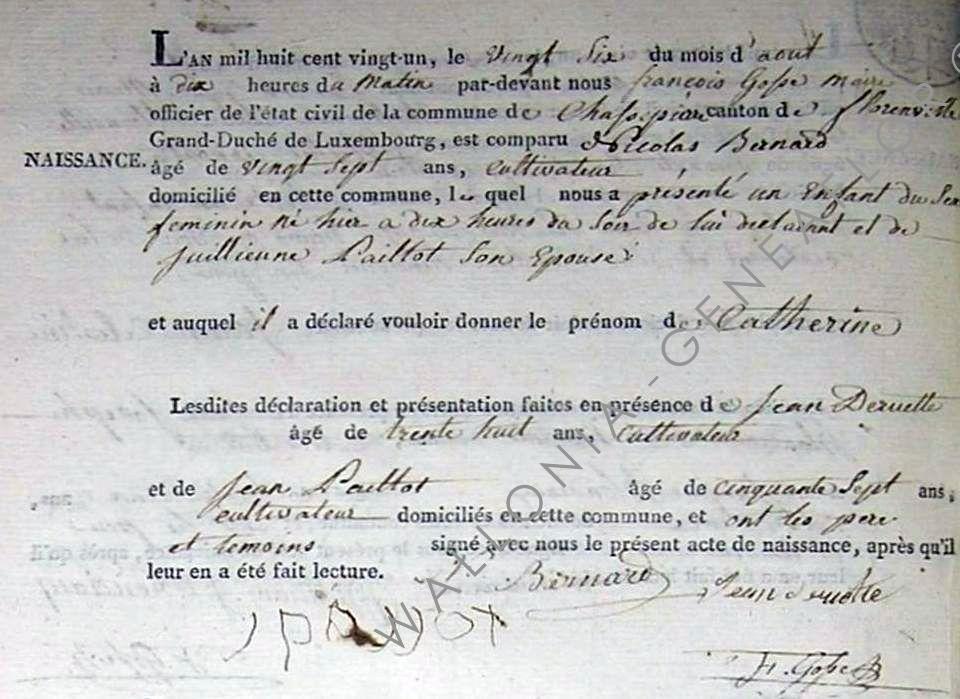 L'AN mil huit cent vingt-un, le vingt six du mois d'aout
à dix heures du Matin par-devant nous françois Gosse maire
officier de l'état civil de la commune de Chassepierre canton de florenville
Grand-Duché de Luxembourg, est comparu Nicolas Bernard
NAISSANCE.
âgé de vingt sept ans, cultivateur
domicilié en cette commune, lequel nous a présenté un Enfant du Sexe
feminin né hier a dix heures du Soir de lui declarant et de
juillienne Paillot son Epouse
et auquel il a déclaré vouloir donner le prénom de Catherine
Lesdites déclaration et présentation faites en présence de Jean Deruette
âgé de trente huit ans, cultivateur
et de Jean Paillot âgé de cinquante Sept ans,
cultivateur domiciliés en cette commune, et ont les pere
et temoins signé avec nous le présent acte de naissance, après qu'il
leur en a été fait lecture.
Bernard Jean Deruette
F. Gosse
WALLONIA-GENEALOGY